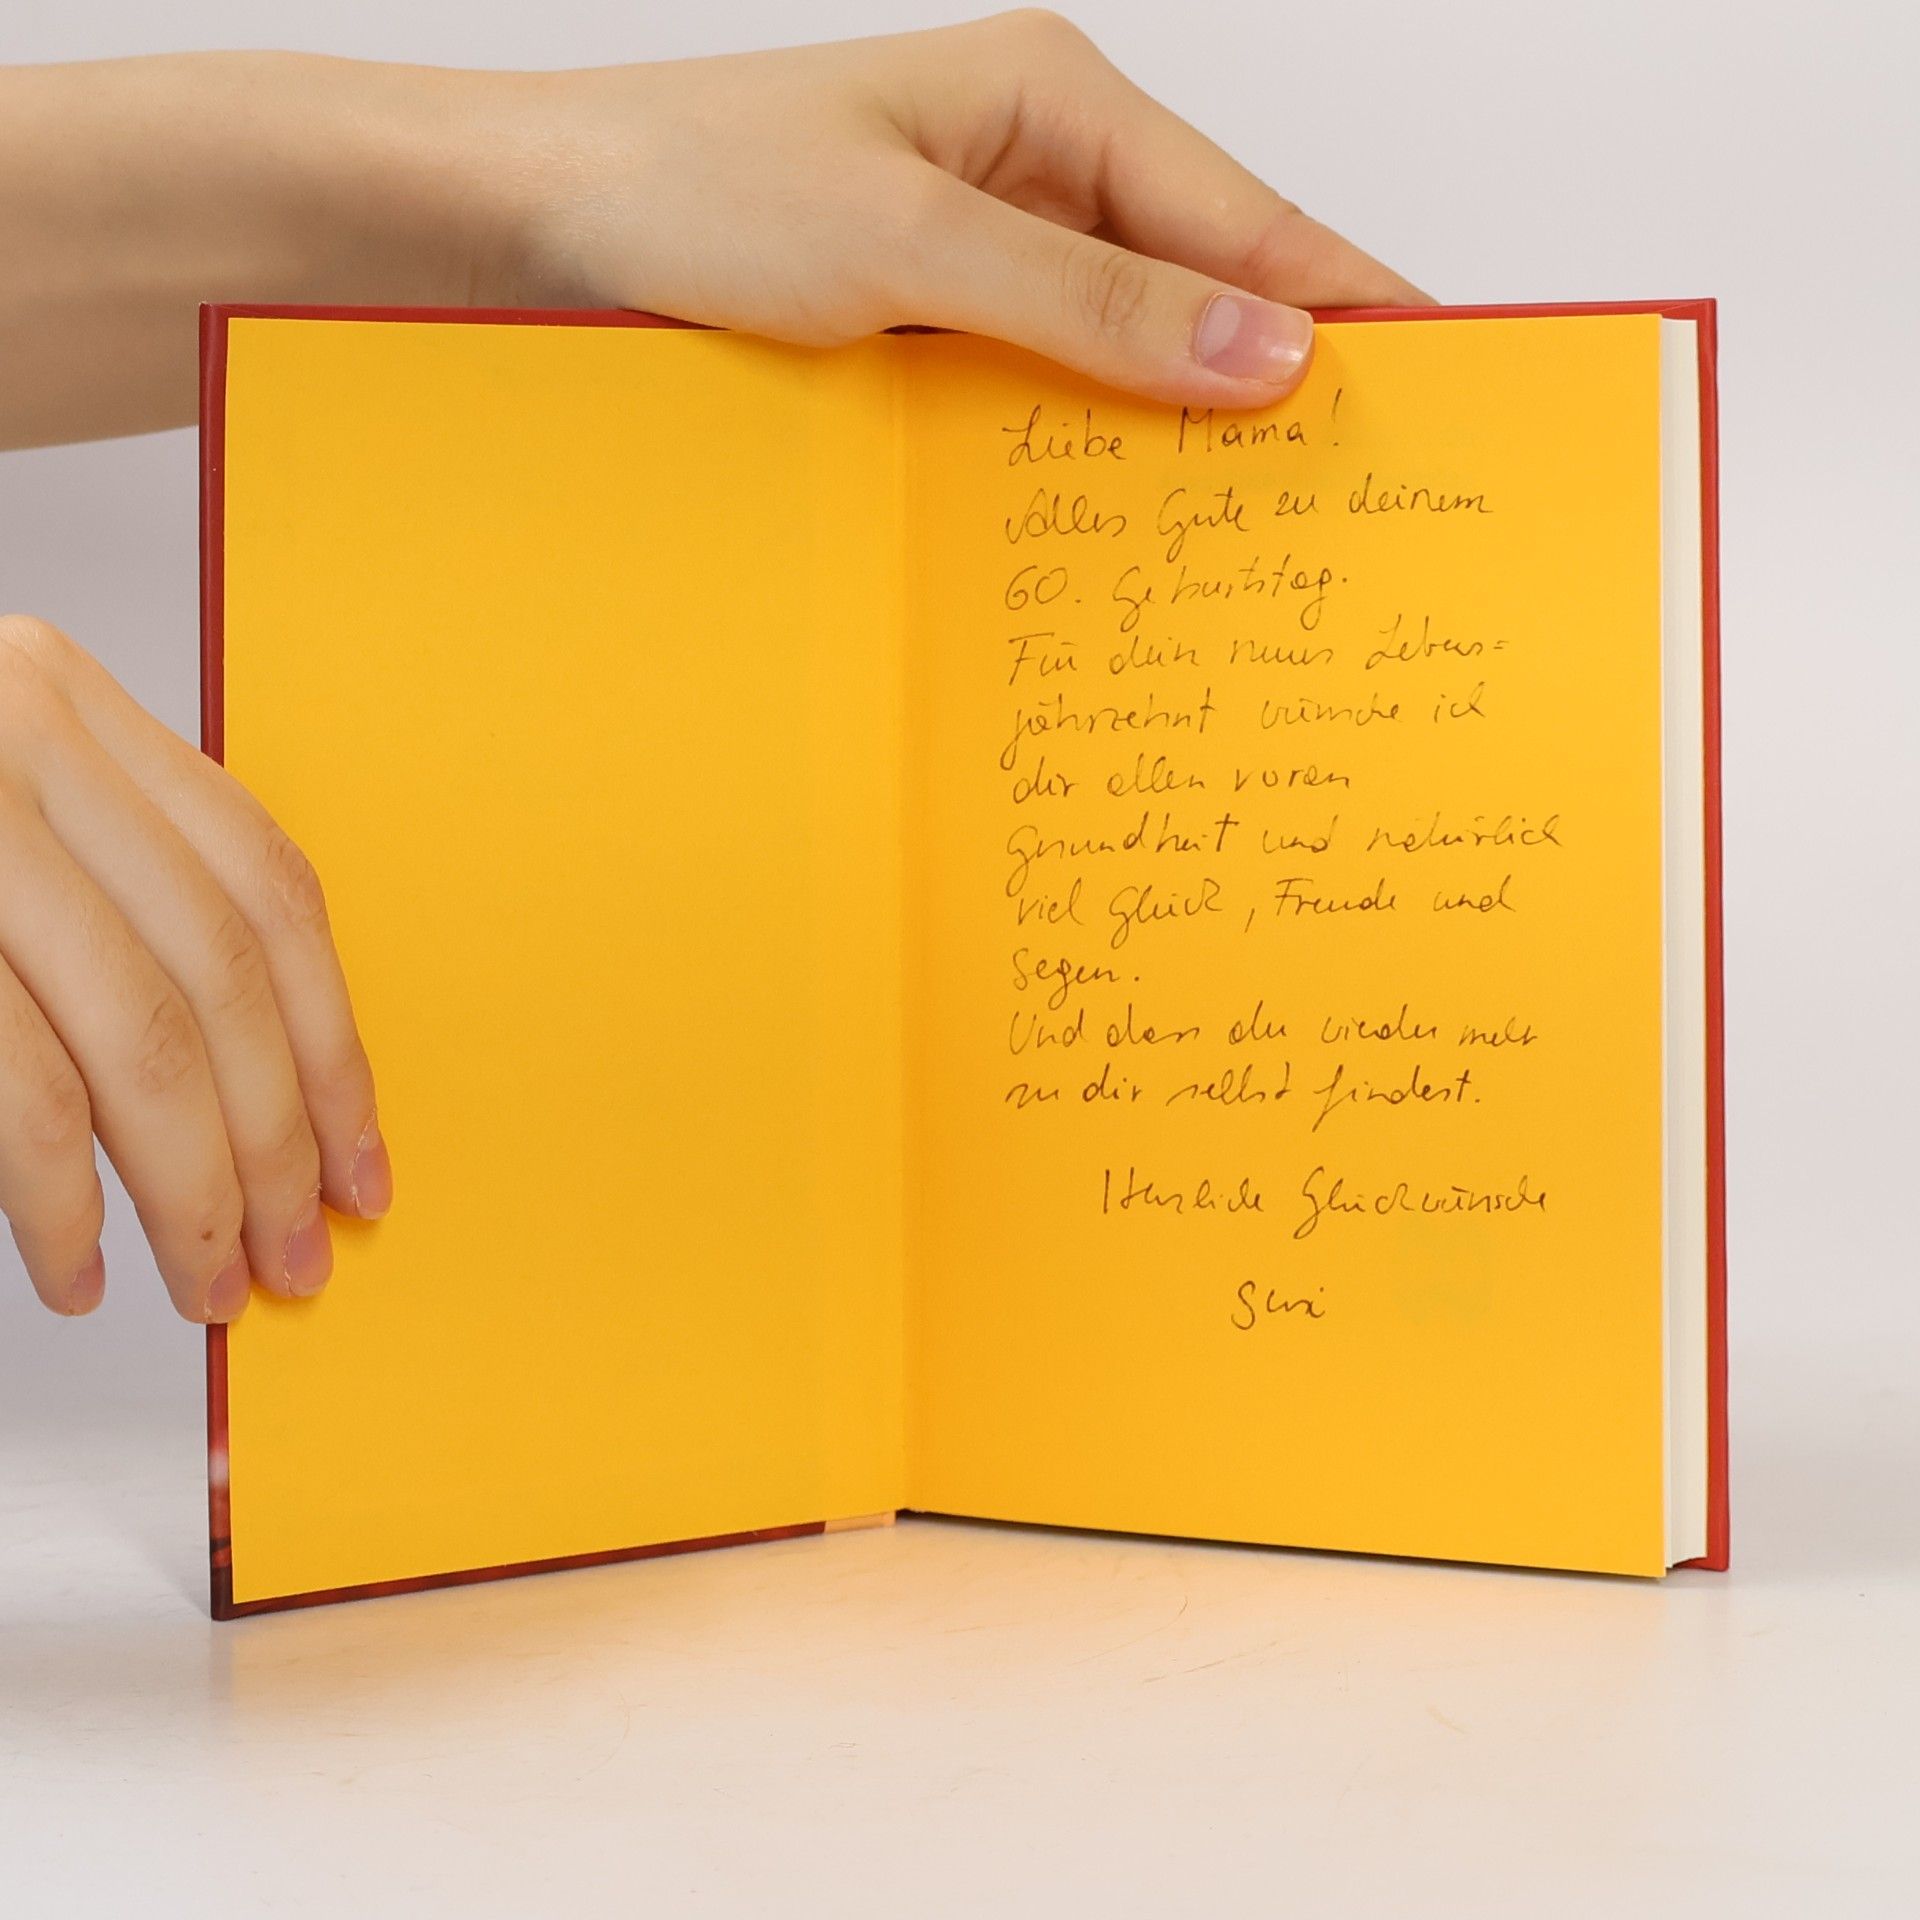 Liebe Mama!
Alles Gute zu deinem
60. Geburtstag.
Für dein neues Lebens=
jahrzehnt wünsche ich
dir allen voran
Gesundheit und natürlich
viel Glück, Freude und
Segen.
Und dass du wieder mehr
zu dir selbst findest.
Herzliche Glückwünsche